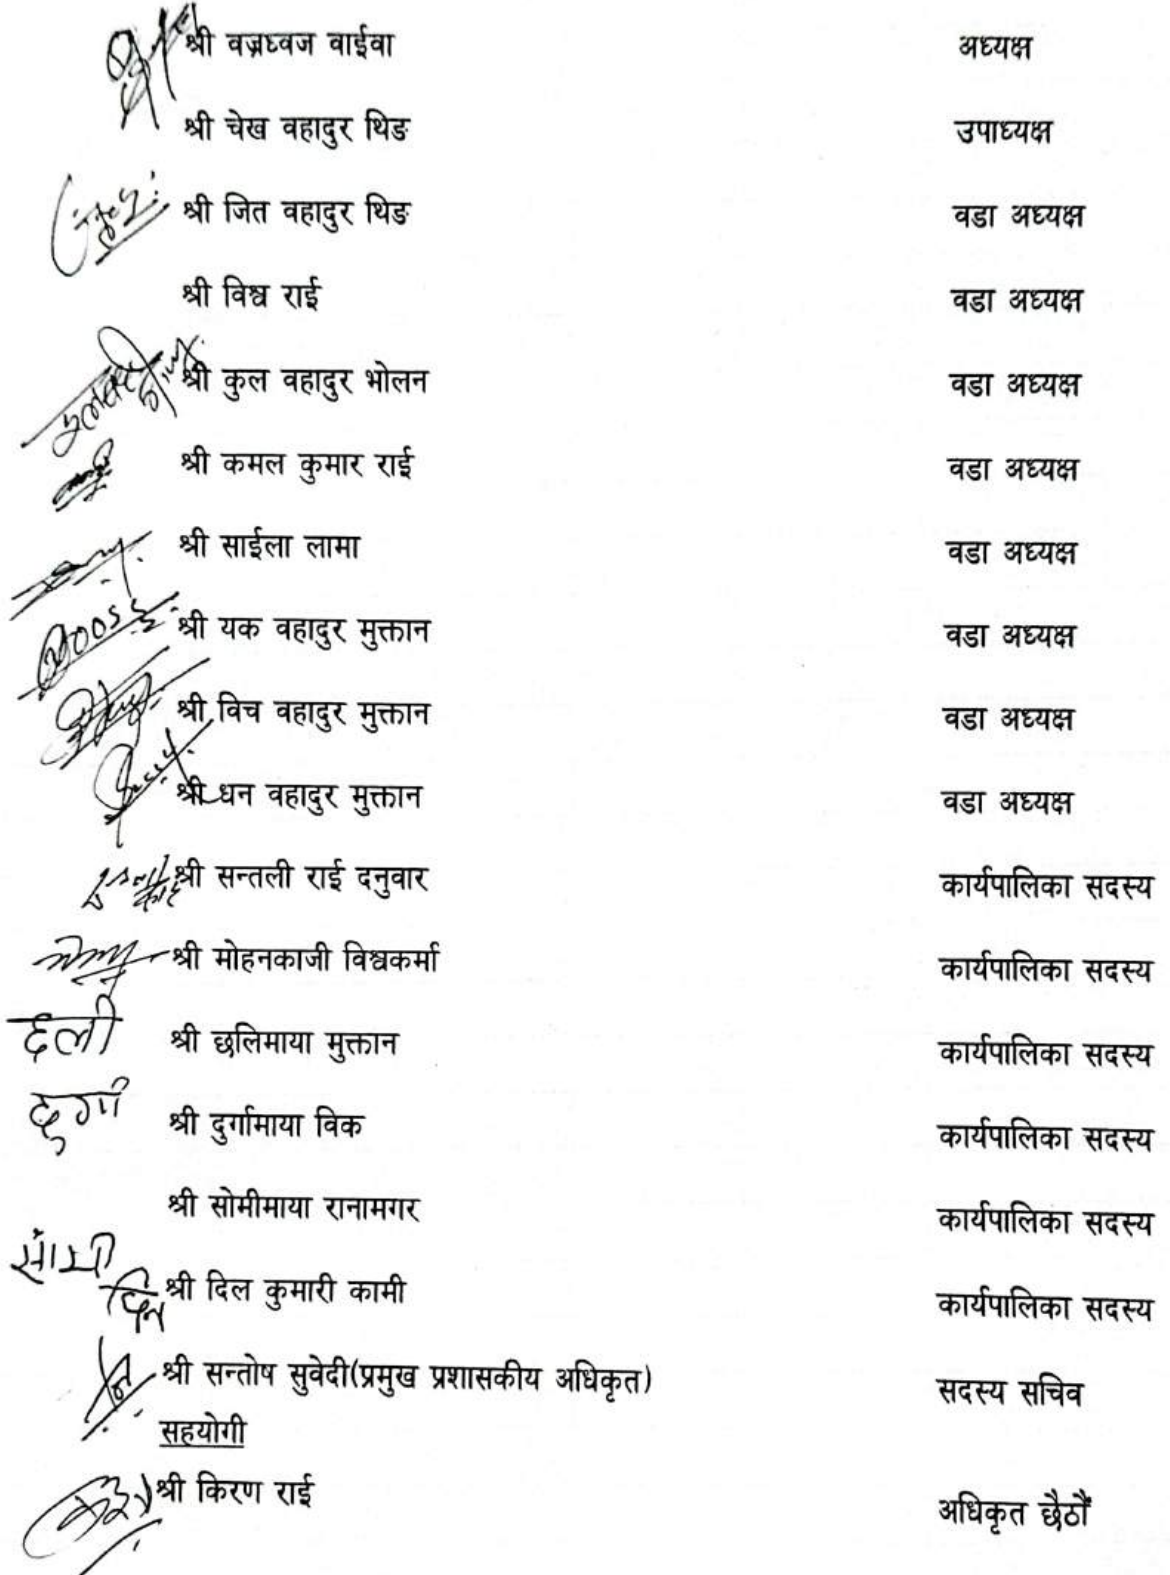 श्री वज्रध्वज वाईवा अध्यक्ष
श्री चेख वहादुर थिङ उपाध्यक्ष
श्री जित वहादुर थिङ वडा अध्यक्ष
श्री विश्व राई वडा अध्यक्ष
श्री कुल वहादुर भोलन वडा अध्यक्ष
श्री कमल कुमार राई वडा अध्यक्ष
श्री साईला लामा वडा अध्यक्ष
श्री यक वहादुर मुक्तान वडा अध्यक्ष
श्री विच वहादुर मुक्तान वडा अध्यक्ष
श्री धन वहादुर मुक्तान वडा अध्यक्ष
श्री सन्तली राई दनुवार कार्यपालिका सदस्य
श्री मोहनकाजी विश्वकर्मा कार्यपालिका सदस्य
श्री छलिमाया मुक्तान कार्यपालिका सदस्य
दुर्गा श्री दुर्गामाया विक कार्यपालिका सदस्य
श्री सोमीमाया रानामगर कार्यपालिका सदस्य
श्री दिल कुमारी कामी कार्यपालिका सदस्य
श्री सन्तोष सुवेदी(प्रमुख प्रशासकीय अधिकृत) सदस्य सचिव
सहयोगी
श्री किरण राई अधिकृत छैठौं